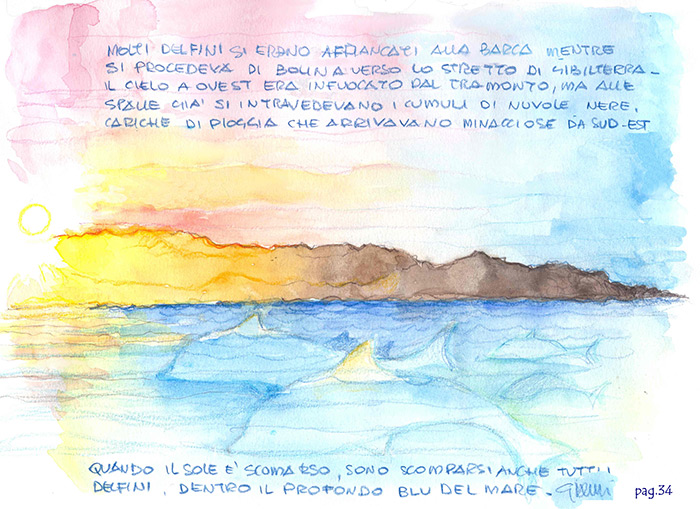 MOLTI DELFINI SI ERANO AFFIANCATI ALLA BARCA MENTRE
SI PROCEDEVA DI BOLINA VERSO LO STRETTO DI GIBILTERRA -
IL CIELO A OVEST ERA INFUOCATO DAL TRAMONTO, MA ALLE
SPALLE GIA' SI INTRAVEDEVANO I CUMULI DI NUVOLE NERE,
CARICHE DI PIOGGIA CHE ARRIVAVANO MINACCIOSE DA SUD-EST
QUANDO IL SOLE E' SCOMPARSO, SONO SCOMPARSI ANCHE TUTTI I
DELFINI, DENTRO IL PROFONDO BLU DEL MARE -
pag.34